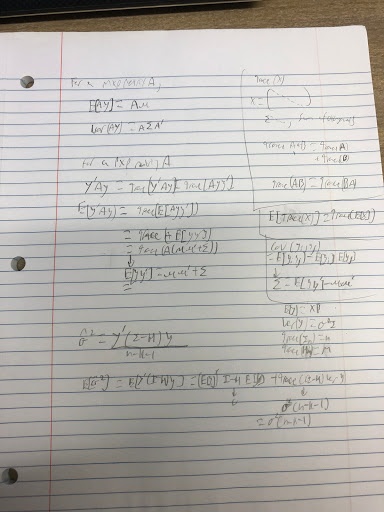 For a mxp matrix A,
E[AY] = Aμ
Cov(AY) = AΣA'
For a pxp matrix A
Y'AY = trace(Y'AY) = trace(AYY')
E[Y'AY] = trace(E[AYY'])
= trace(A E[YY'])
= trace(A(μμ'+Σ))
↓
E[YY'] = μμ' + Σ
σ̂² = Y'(I-H)Y
n-k-1
E[σ̂²] = E[Y'(I-H)Y] = (E[Y])' I-H E[Y] + trace(I-H) Var Y
↓ ↓
σ²(n-k-1)
= σ²(n-k-1)
trace(X)
X = ( )
trace(A+B) = trace(A)
+ trace(B)
trace(AB) = trace(BA)
E[trace(X)] = trace(E[X])
= E[YY'] - E[Y] E[Y]'
↓
Σ = E[YY'] - μμ'
E[Y] = Xβ
Var(Y) = σ²I
trace(In) = n